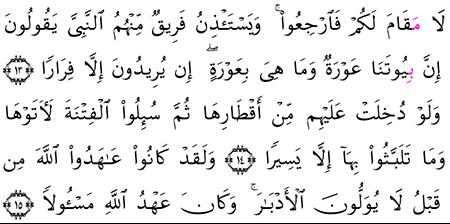 لَا مَقَامَ لَكُمْ فَٱرْجِعُوا۟ ۚ وَيَسْتَـْٔذِنُ فَرِيقٌ مِّنْهُمُ ٱلنَّبِىَّ يَقُولُونَ
إِنَّ بِيُوتَنَا عَوْرَةٌ وَمَا هِىَ بِعَوْرَةٍ ۖ إِن يُرِيدُونَ إِلَّا فِرَارًا ﴿١٣﴾
وَلَوْ دُخِلَتْ عَلَيْهِم مِّنْ أَقْطَارِهَا ثُمَّ سُئِلُوا۟ ٱلْفِتْنَةَ لَأَتَوْهَا
وَمَا تَلَبَّثُوا۟ بِهَآ إِلَّا يَسِيرًا ﴿١٤﴾ وَلَقَدْ كَانُوا۟ عَـٰهَدُوا۟ ٱللَّهَ مِن
قَبْلُ لَا يُوَلُّونَ ٱلْأَدْبَـٰرَ ۚ وَكَانَ عَهْدُ ٱللَّهِ مَسْـُٔولًا ﴿١٥﴾